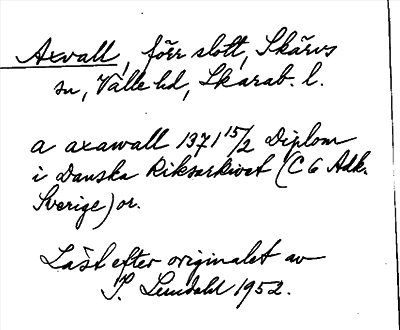 Axvall, förr slott, Skärvs
sn, Valle hd, Skarab. l.
a axawall 1371 15/2 Diplom
i Danska Riksarkivet (C 6 Adk.
Sverige) or.
Läst efter originalet av
I. Lundahl 1952.